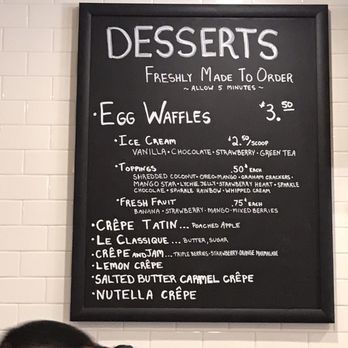 DESSERTS
FRESHLY MADE TO ORDER
~ ALLOW 5 MINUTES ~
• EGG WAFFLES $3.50
• ICE CREAM $2.50/SCOOP
VANILLA • CHOCOLATE • STRAWBERRY • GREEN TEA
• TOPPINGS .50¢ EACH
SHREDDED COCONUT • OREO • MANGO • GRAHAM CRACKERS •
MANGO STAR • LYCHEE JELLY • STRAWBERRY HEART • SPARKLE
CHOCOLAE • SPARKLE RAINBOW • WHIPPED CREAM
• FRESH FRUIT .75¢ EACH
BANANA • STRAWBERRY • MANGO • MIXED BERRIES
• CRÊPE TATIN ... POACHED APPLE
• LE CLASSIQUE ... BUTTER, SUGAR
• CRÊPE AND JAM ... TRIPLE BERRIES • STRAWBERRY • ORANGE MARMALADE
• LEMON CRÊPE
• SALTED BUTTER CARAMEL CRÊPE
• NUTELLA CRÊPE